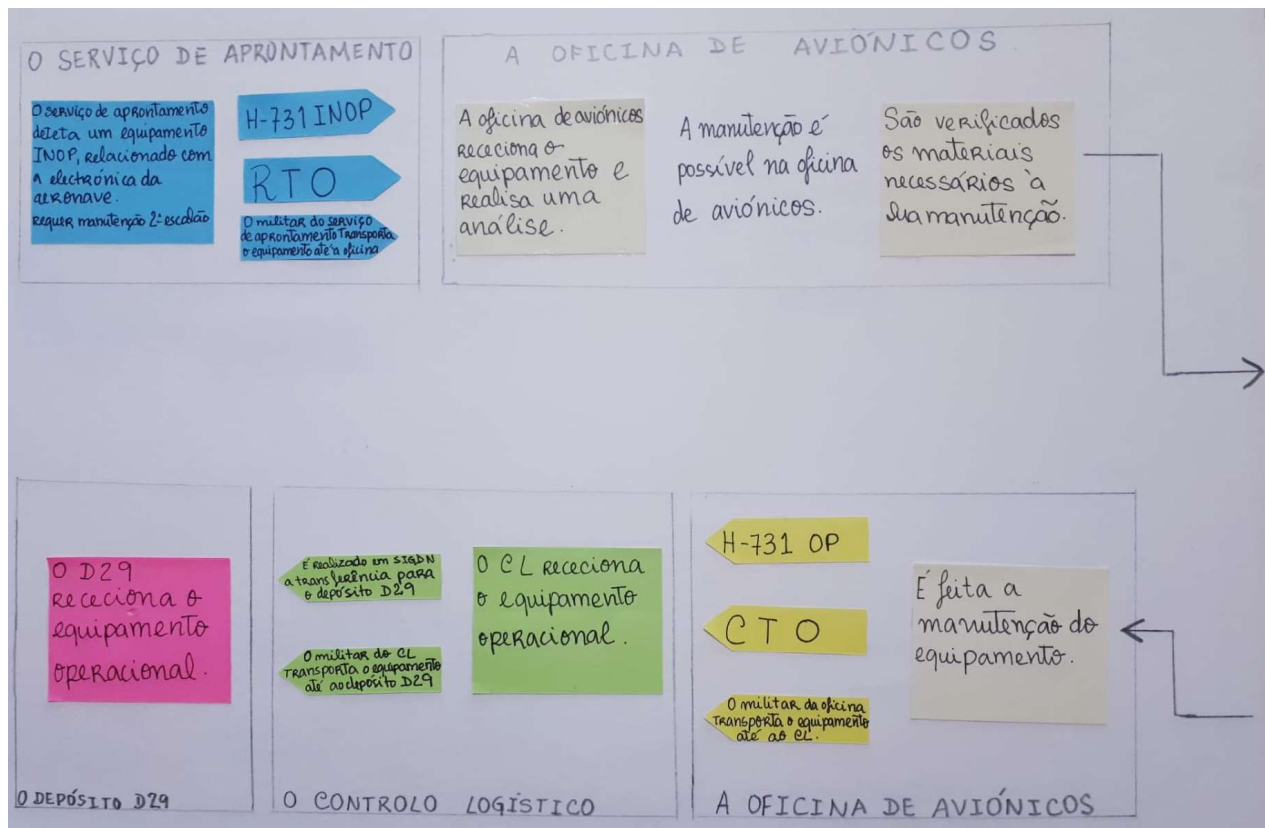 O SERVIÇO DE APRONTAMENTO
O serviço de aprontamento
deteta um equipamento
INOP, relacionado com
a electrónica da
aeronave.
Requer manutenção 2º escalão
H-731 INOP
RTO
O militar do serviço
de aprontamento transporta
o equipamento até à oficina
A OFICINA DE AVIÓNICOS
A oficina de aviónicos
receciona o
equipamento e
realisa uma
análise.
A manutenção é
possível na oficina
de aviónicos.
São verificados
os materiais
necessários à
sua manutenção.
O D29
receciona o
equipamento
operacional.
O DEPÓSITO D29
É realizado em SIGDN
a transferência para
o depósito D29
O militar do CL
transporta o equipamento
até ao depósito D29
O CL receciona
o equipamento
operacional.
O CONTROLO LOGÍSTICO
H-731 OP
CTO
O militar da oficina
transporta o equipamento
até ao CL.
É feita a
manutenção do
equipamento.
A OFICINA DE AVIÓNICOS